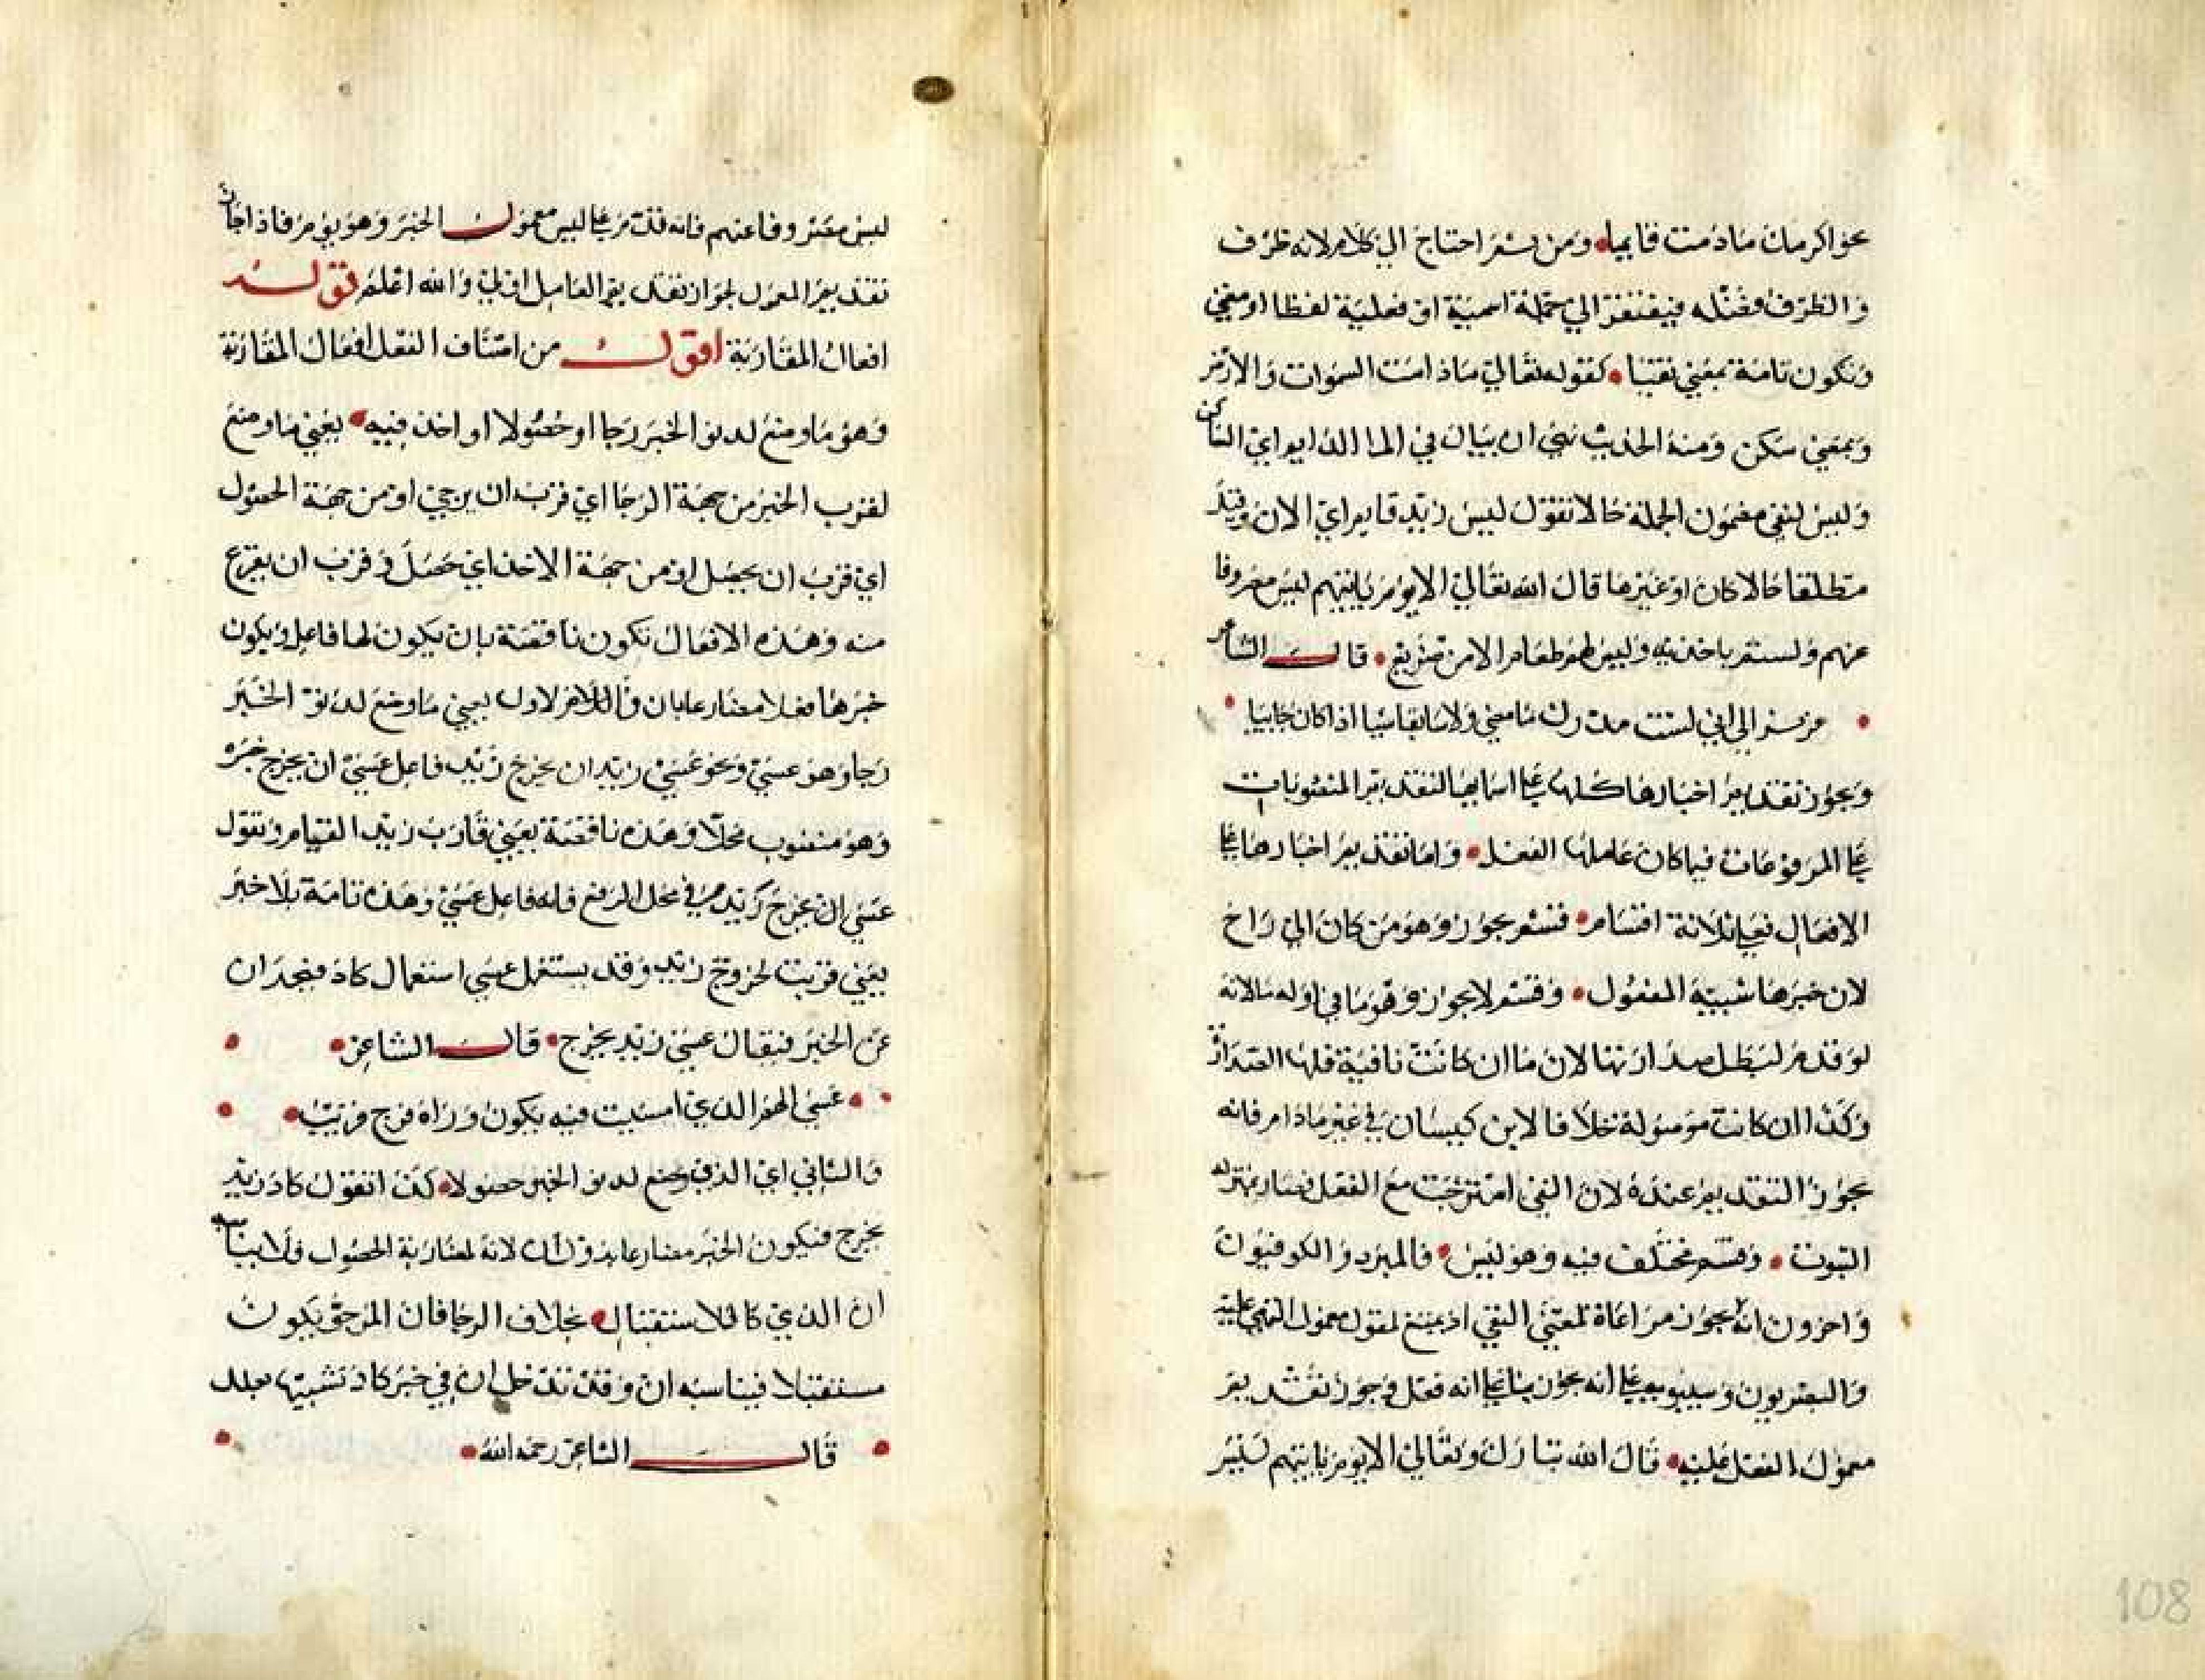 نحو اكرمك مادمت قايما ومن ثم احتاج الي كلام لانه ظرف
والظرف فضله فيفتقر الي جملة اسمية او فعلية لفظا او معني
وتكون تامة بمعني بقيتا كقوله تعالي مادامت السموات والارض
وبمعني سكن ومنه الحديث نهي ان يبال في الما الدايم اي الساكن
وليس لنفي مضمون الجملة حالا تقول ليس زيد قايم اي الان وقيل
مطلقا حالا كان او غيرها قال الله تعالي الا يوم ياتيهم ليس مصروفا
عنهم ولستم باخذيه وليس لهم طعام الا من ضريع قال الشاعر
الي اني لست مدرك مامضي ولا سابقا شيا اذا كان جاييا
ويجوز تقديم اخبارها كلها علي اسمايها لتقديم المنصوبات
علي المرفوعات فيما كان عاملها الفعل واما تقديم اخبارها علي
الافعال فعلي ثلاثة اقسام قسم يجوز وهو من كان الي راح
لان خبرها شبيه المفعول وقسم لا يجوز وهو ما في اوله ما لانه
لو قدم لبطل صدارتها لان ما ان كانت نافية فلها الصدارة
وكذا ان كانت موصولة خلافا لابن كيسان في غير مادام فانه
يجوز التقديم عنده لان النفي امتزجت مع الفعل فصار بمنزله
الثبوت وقسم مختلف فيه وهو ليس فالمبرد والكوفيون
واخرون انه لا يجوز مراعاة لمعني النفي اذ يمتنع لقول معمول النفي عليه
والبصريون وسيبويه علي انه يجوز بنا علي انه فعل وجوز تقديم
معمول الفعل عليه قال الله تبارك وتعالي الا يوم ياتيهم ليس
ليس مصروفا عنهم فانه قدم علي ليس معمول الخبر وهو يوم فاذا جاز
تقديم المعمول لجواز تقديم العامل اولي والله اعلم قوله
افعال المقاربة اقول من اصناف الفعل افعال المقاربة
وهو ما وضع لدنو الخبر رجا او حصولا او اخذ فيه يعني ما وضع
لقرب الخبر من جهة الرجا اي قرب ان يرجي او من جهة الحصول
اي قرب ان يحصل او من جهة الاخذ اي حصل وقرب ان يفرغ
منه وهذه الافعال تكون ناقصة بان يكون لها فاعل ويكون
خبرها فعلا مضارعا بان فالاول يعني ما وضع لدنو الخبر
رجا وهو عسي ونحو عسي زيد ان يخرج زيد فاعل عسي ان يخرج خبره
وهو منصوب محلا وهذه ناقصة بمعني قارب زيد القيام وتقول
عسي ان يخرج زيد في محل الرفع فانه فاعل عسي وهذه تامة بلا خبر
بمعني قربت لخروج زيد وقد يستعمل عسي استعمال كاد فيجد ان
عن الخبر فيقال عسي زيد يخرج قال الشاعر
عسي الهم الذي امسيت فيه يكون وراه فرج قريب
والثاني اي الذي وضع لدنو الخبر حصولا كذا تقول كاد زيد
يخرج فيكون الخبر مضارعا بدون ان لانه لمقاربة الحصول ولا يناسبه
ان الذي كا للاستقبال بخلاف الرجا فان المرجو يكون
مستقبلا فيناسبه ان وقد تدخل ان في خبر كاد تشبيها بعلل
قال الشاعر رحمه الله
108